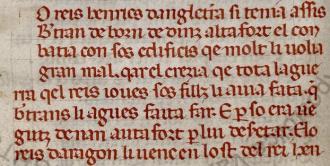 O reis henrics dangleterra si tenia assis
B'tran de born de dinz altafort el con
batia con sos edificis qe molt li uolia
gran mal. qar el crezia qe tota la gue
rra qel reis ioues sos fillz li auia fata. q
b'trans li agues faita far. E p so era ue
gutz denan autafort p lui deseretar. E lo
reis daragon li uenc en lost del rei hen